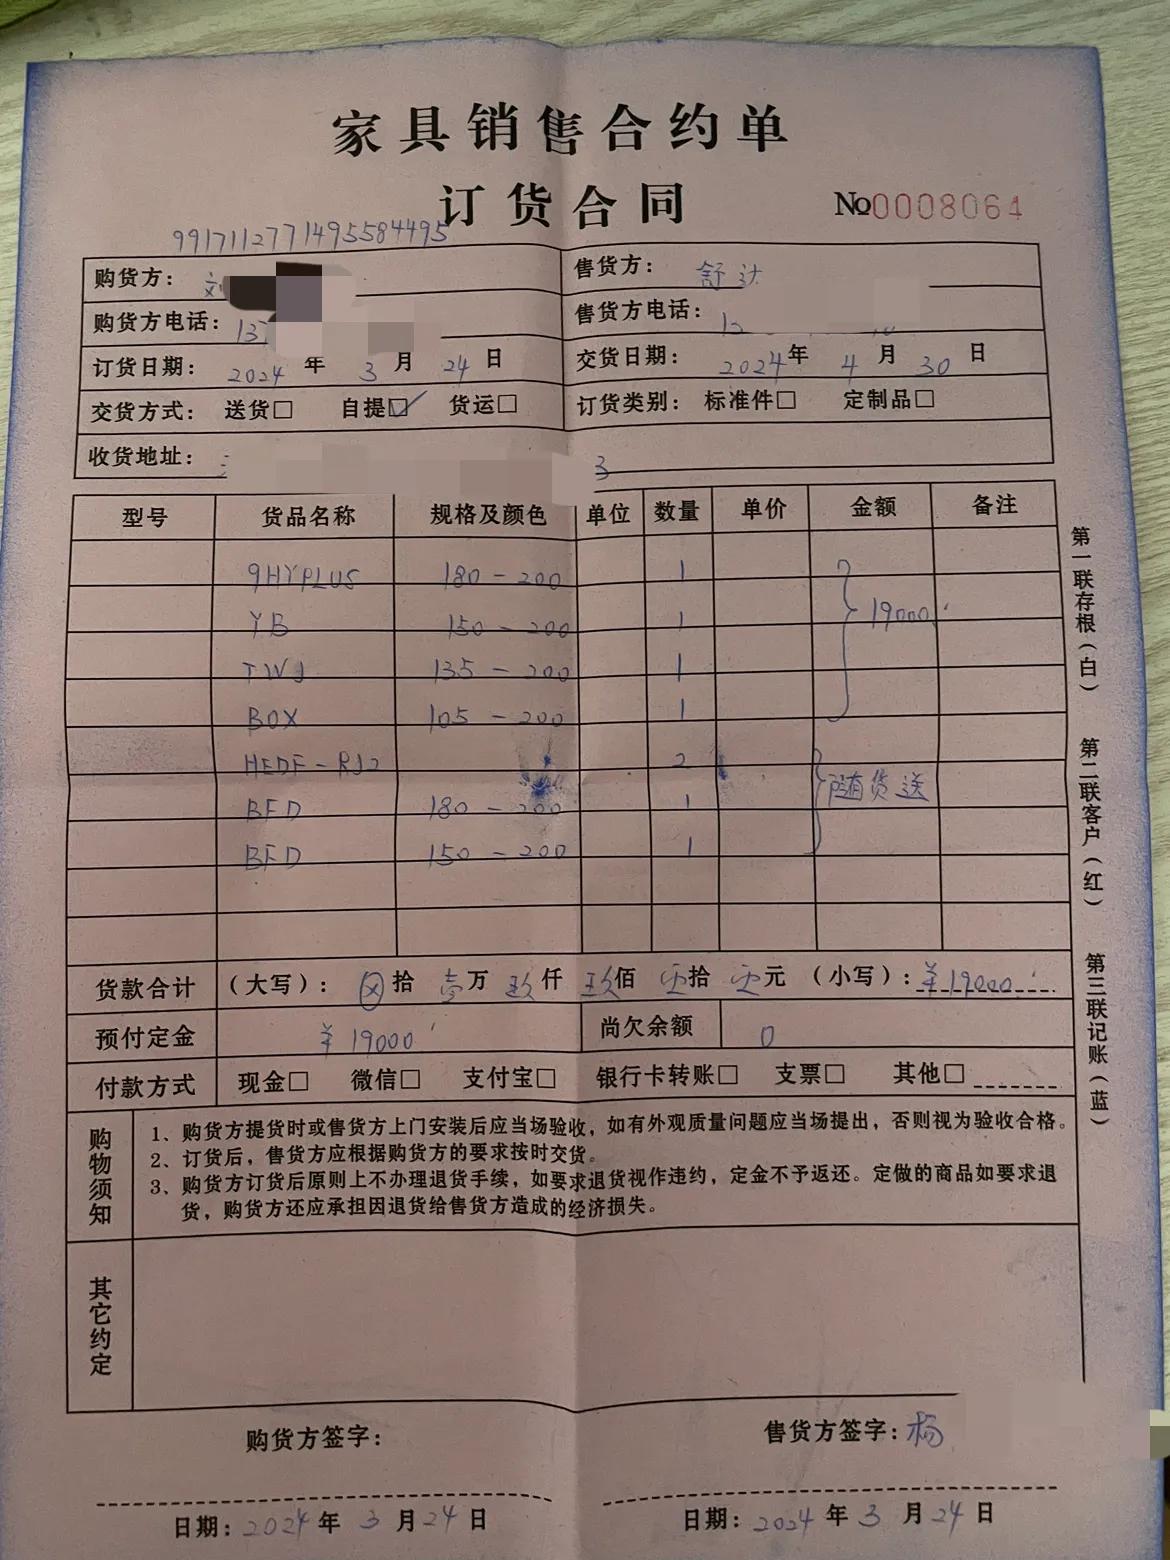 家具销售合约单
订货合同 №0008064
9917112771495584495
购货方： 售货方：舒达
购货方电话：137 售货方电话：
订货日期：2024年3月24日 交货日期：2024年4月30日
交货方式：送货□ 自提☑ 货运□ 订货类别：标准件□ 定制品□
收货地址： 3
型号 货品名称 规格及颜色 单位 数量 单价 金额 备注
9HYPLUS 180-200 1
YB 150-200 1 19000
TWJ 135-200 1
BOX 105-200 1
HEDF-RJ2 2
BFD 180-200 1 随货送
BFD 150-200 1
货款合计 （大写）：⊗拾壹万玖仟玖佰零拾零元 （小写）：¥19000
预付定金 ¥19000 尚欠余额 0
付款方式 现金□ 微信□ 支付宝□ 银行卡转账□ 支票□ 其他□
购物须知
1、购货方提货时或售货方上门安装后应当场验收，如有外观质量问题应当场提出，否则视为验收合格。
2、订货后，售货方应根据购货方的要求按时交货。
3、购货方订货后原则上不办理退货手续，如要求退货视作违约，定金不予返还。定做的商品如要求退
货，购货方还应承担因退货给售货方造成的经济损失。
其它约定
购货方签字： 售货方签字：杨
日期：2024年3月24日 日期：2024年3月24日
第一联存根（白） 第二联客户（红） 第三联记账（蓝）